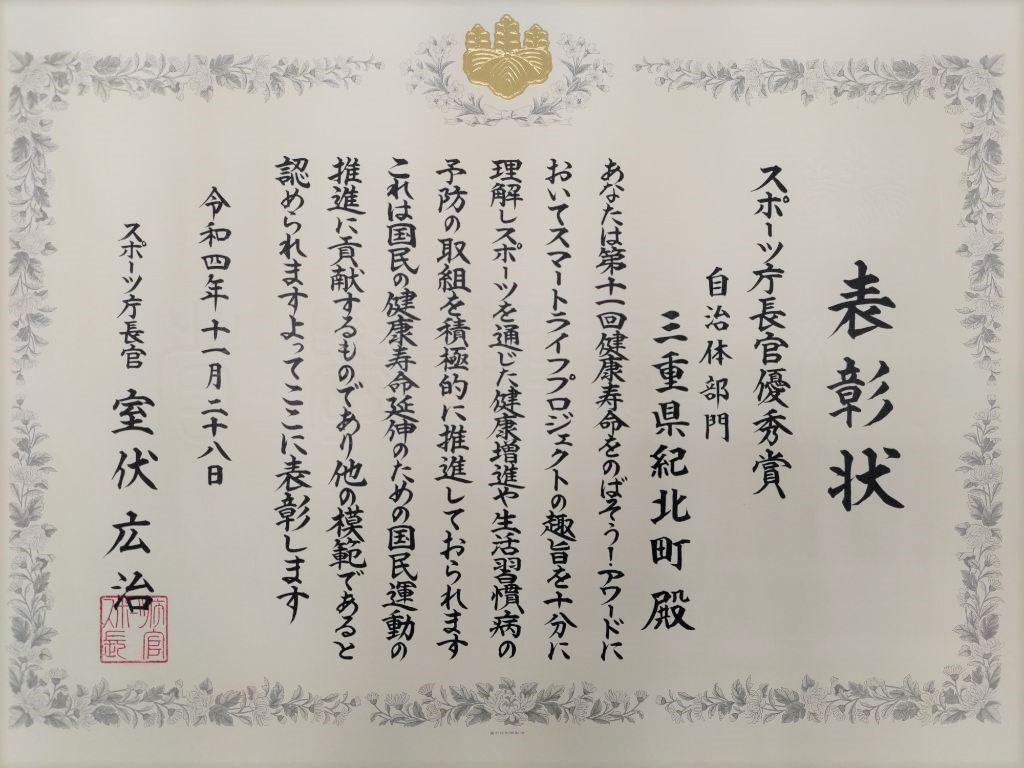 表彰状
スポーツ庁長官優秀賞
自治体部門
三重県紀北町殿
あなたは第十一回健康寿命をのばそう！アワードに
おいてスマートライフプロジェクトの趣旨を十分に
理解しスポーツを通じた健康増進や生活習慣病の
予防の取組を積極的に推進しておられます
これは国民の健康寿命延伸のための国民運動の
推進に貢献するものであり他の模範であると
認められますよってここに表彰します
令和四年十一月二十八日
スポーツ庁長官 室伏広治